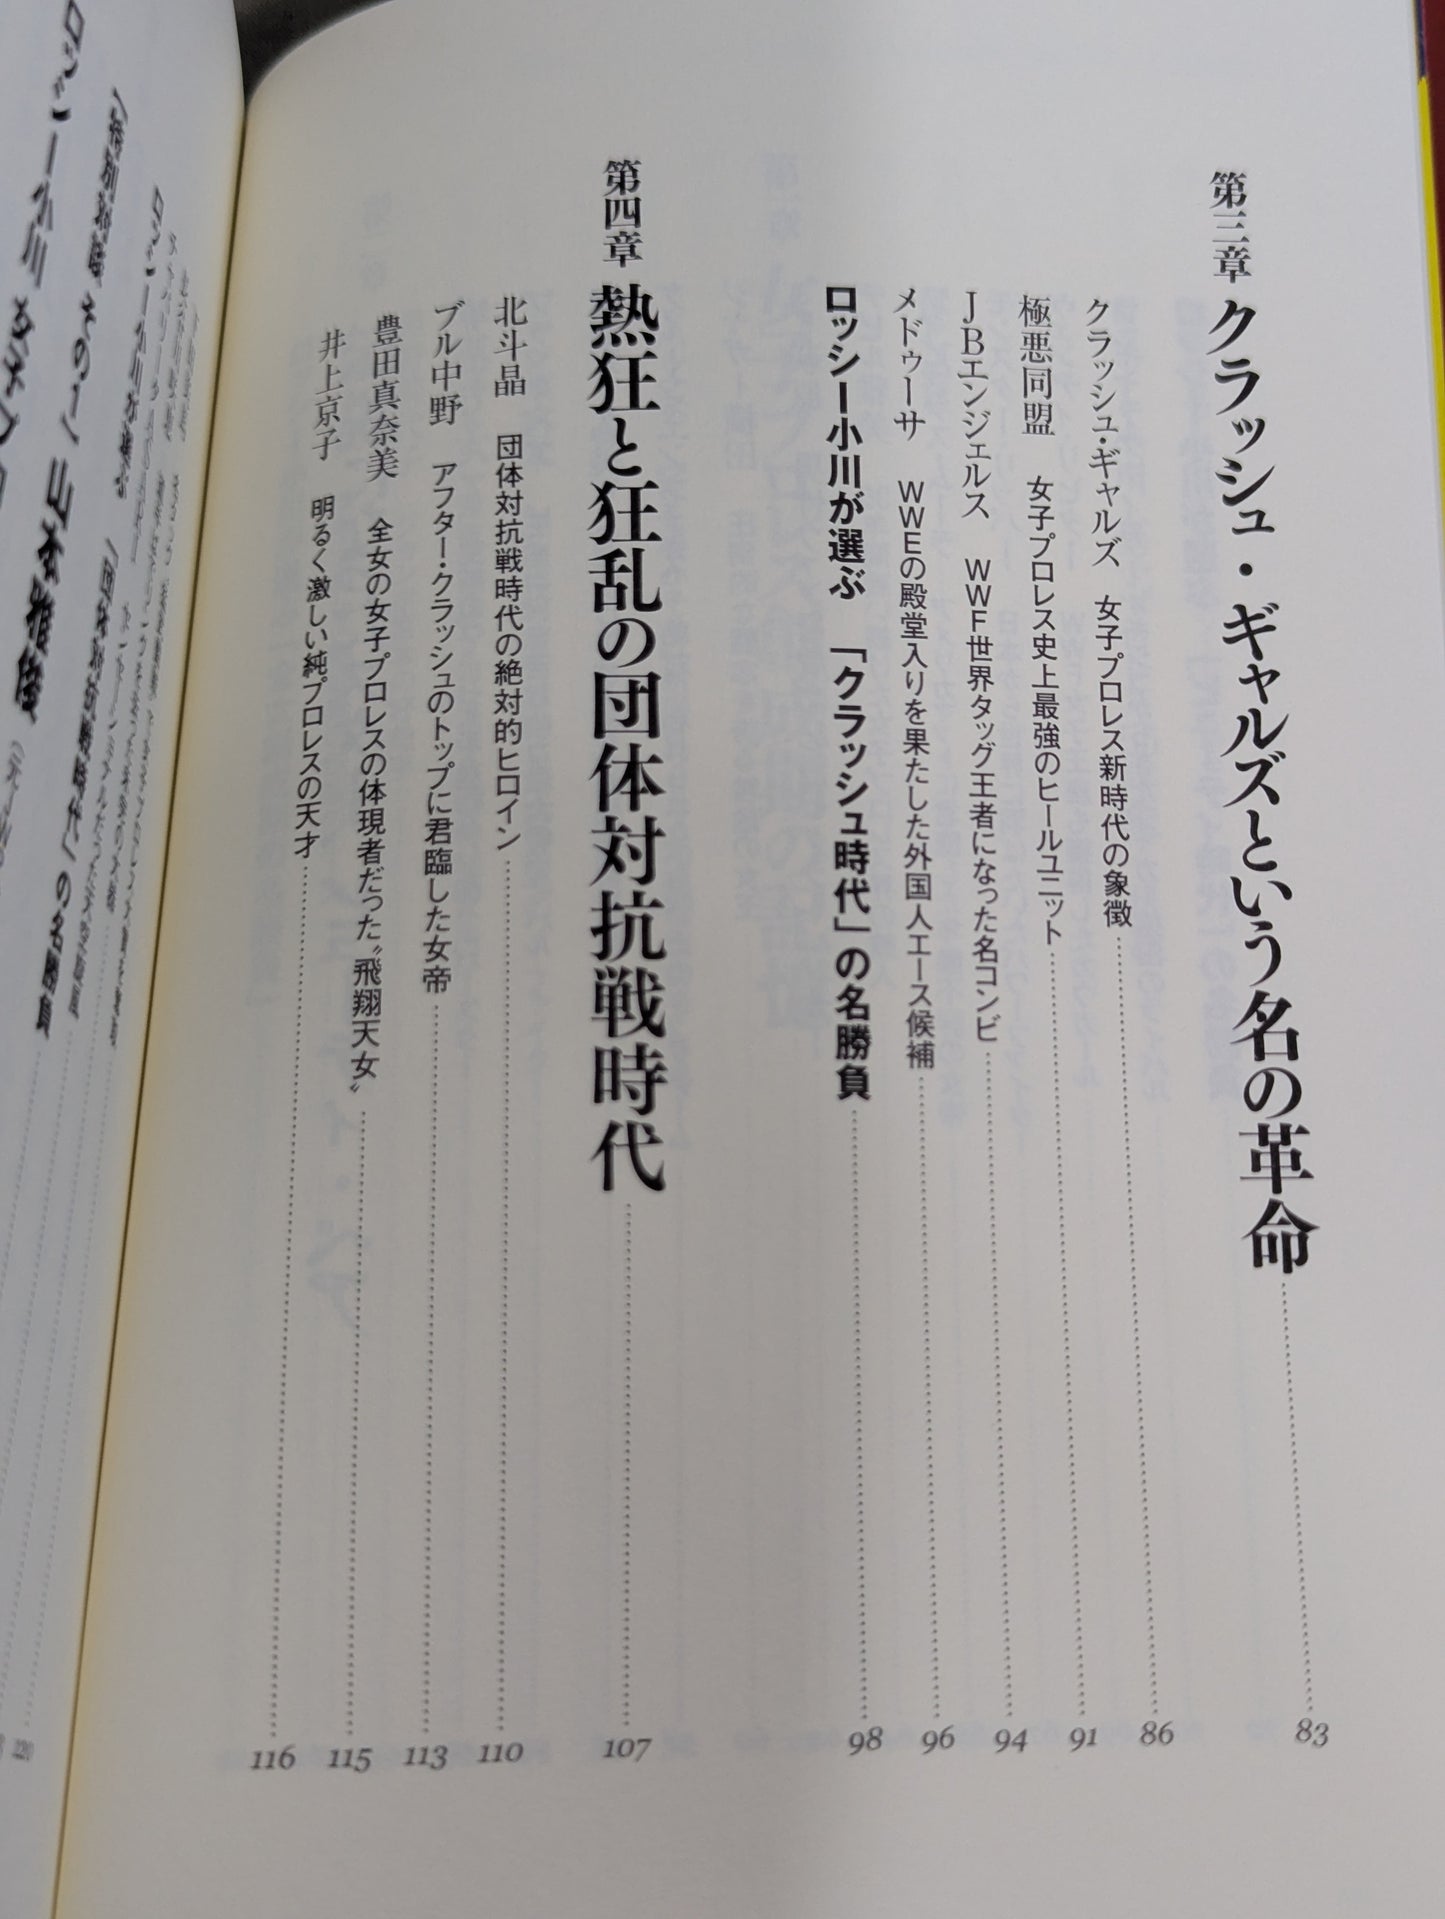 第三章 クラッシュ・ギャルズという名の革命 83
クラッシュ・ギャルズ 女子プロレス新時代の象徴 86
極悪同盟 女子プロレス史上最強のヒールユニット 91
JBエンジェルス WWF世界タッグ王者になった名コンビ 94
メドゥーサ WWEの殿堂入りを果たした外国人エース候補 96
ロッシー小川が選ぶ 「クラッシュ時代」の名勝負 98
第四章 熱狂と狂乱の団体対抗戦時代 107
北斗晶 団体対抗戦時代の絶対的ヒロイン 110
ブル中野 アフター・クラッシュのトップに君臨した女帝 113
豊田真奈美 全女の女子プロレスの体現者だった〝飛翔天女〟 115
井上京子 明るく激しい純プロレスの天才 116
ロッシー小川が選ぶ 「団体対抗戦時代」の名勝負
120
山本雅俊
ロッシー小川